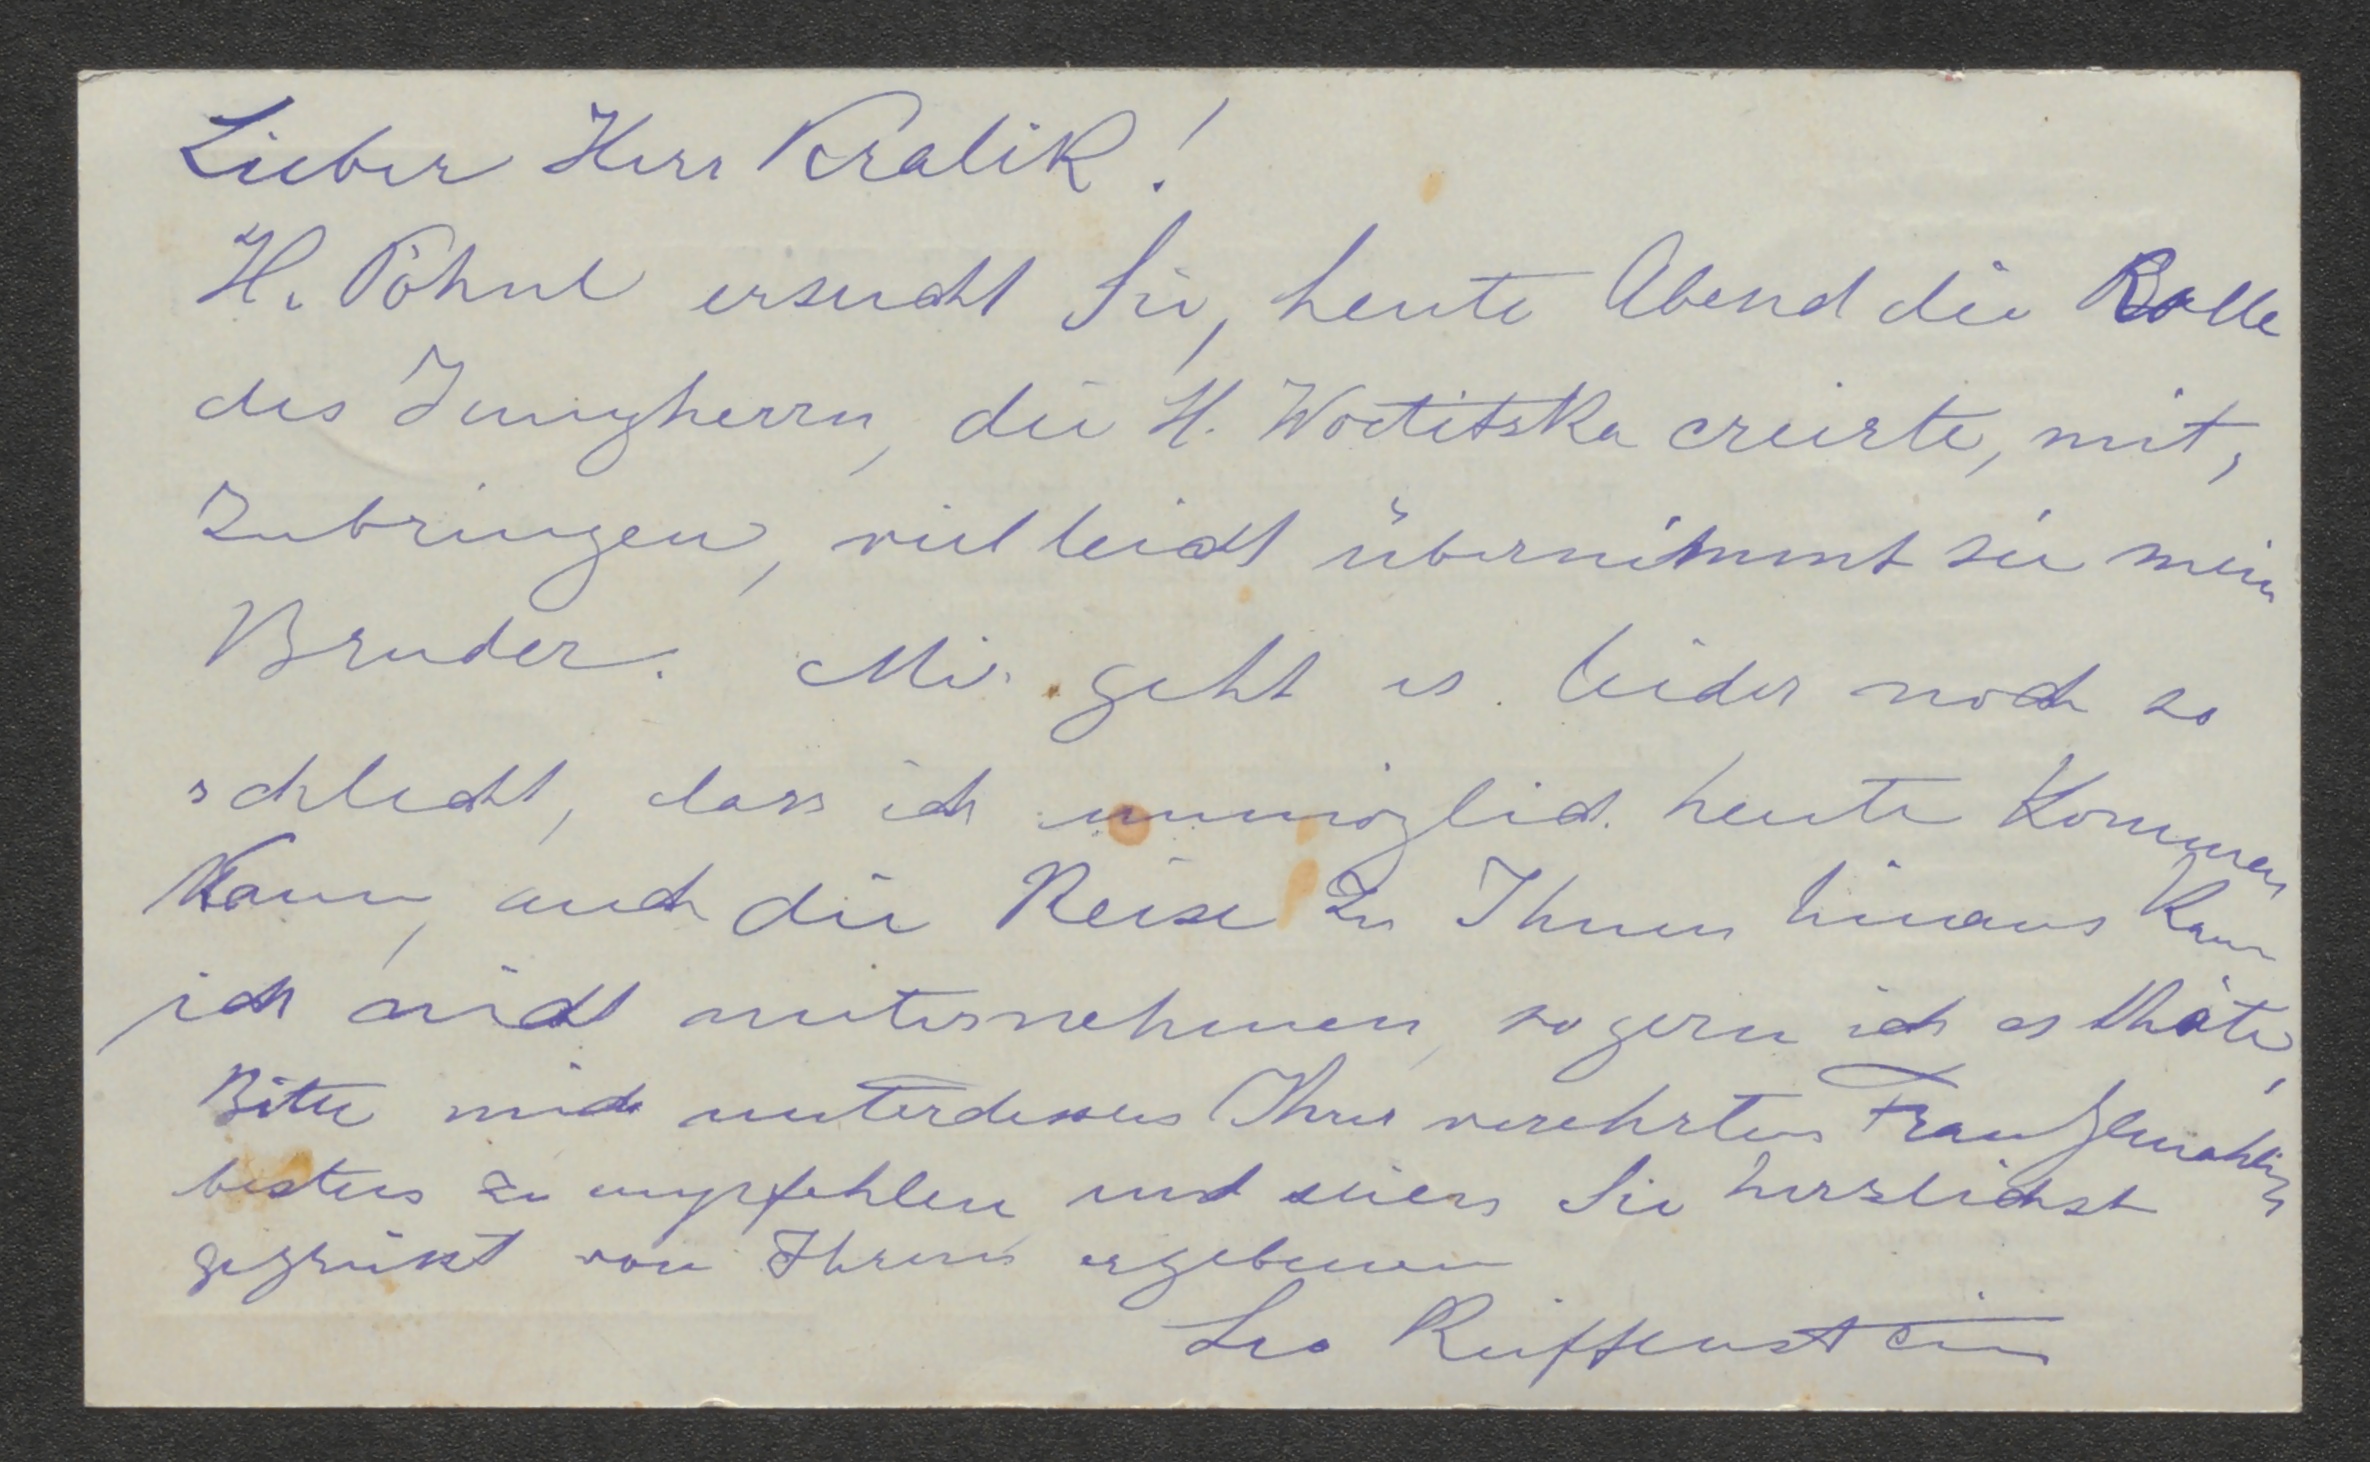 Lieber Herr Kralik!
H. Pöhnl ersucht Sie, heute Abend die Rolle
des Jungherrn, die H. Wottitska creirte, mit,
zubringen, vielleicht übernimmt sie mein
Bruder. Mir geht es leider noch so
schlecht, dass ich unmöglich heute kommen
kann, auch die Reise zu Ihnen hinaus kann
ich nicht unternehmen, so gern ich es thäte,
Bitte mich unterdessen Ihrer verehrten Frau Gemahlin
bestens zu empfehlen und seien Sie herzlichst
gegrüsst von Ihrem ergebenen
Leo Reiffenstein